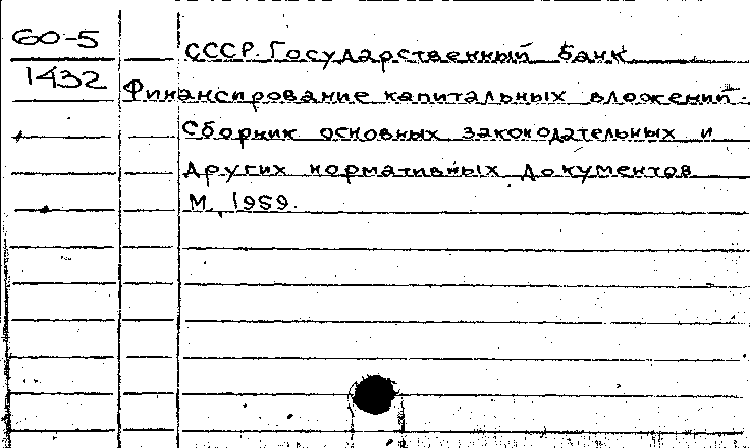 60-5
1432
СССР. Государственный банк
Финансирование капитальных вложений.
Сборник основных законодательных и
других нормативных документов
М., 1959.